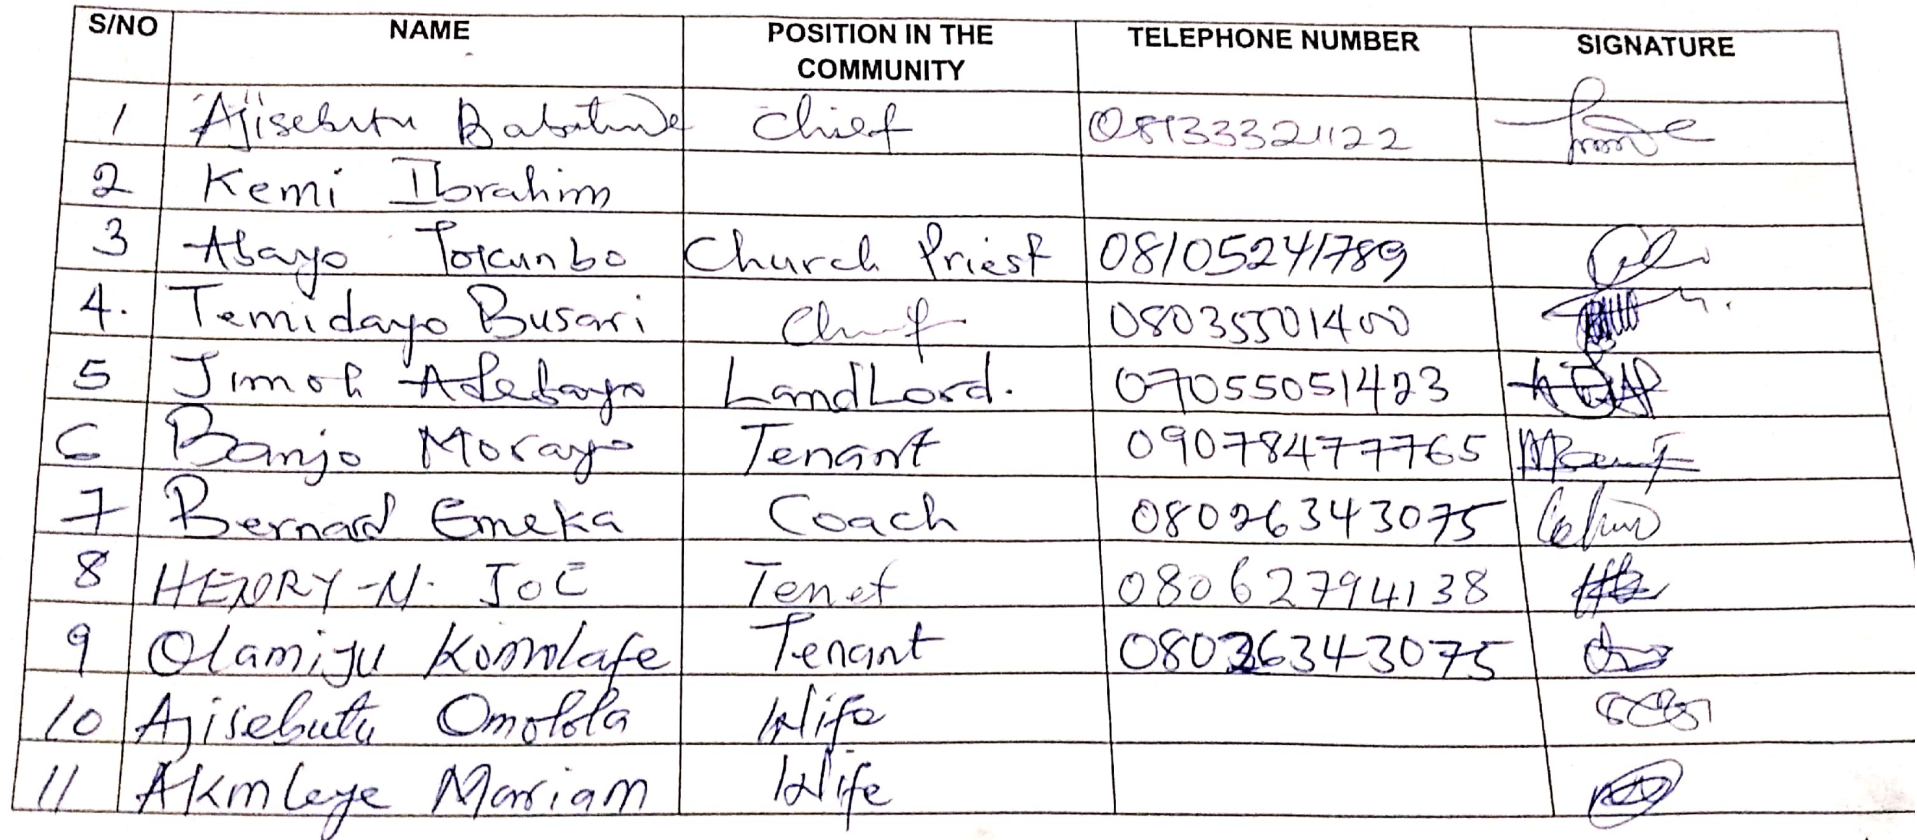 S/NO NAME POSITION IN THE COMMUNITY TELEPHONE NUMBER SIGNATURE
1 Ajisebutu Babatunde Chief 08133321122
2 Kemi Ibrahim
3 Abayo Tokunbo Church Priest 08105241789
4. Temidayo Busari Chief 08035501400
5 Jimoh Adebayo LandLord. 07055051423
6 Banjo Morayo Tenant 09078477765
7 Bernard Emeka Coach 08026343075
8 HENRY-N. JOE Tenet 08062794138
9 Olamiju Komolafe Tenant 08026343075
10 Ajisebutu Omolola Wife
11 Akinleye Mariam Wife